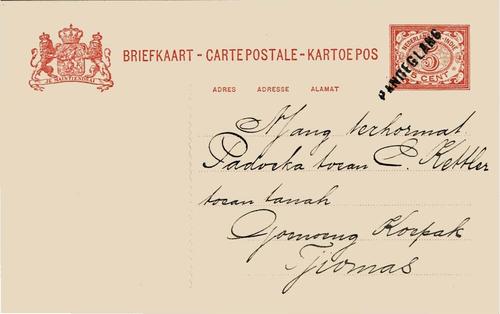 BRIEFKAART - CARTE POSTALE - KARTOE POS
ADRES ADRESSE ALAMAT
JE MAINTIENDRAI
NEDERL. INDIE
5
5 CENT
PANDEGLANG
Njang terhormat
Padoeka toean C. Kettler
toean tanah
Goenoeng Koepak
Tjiomas